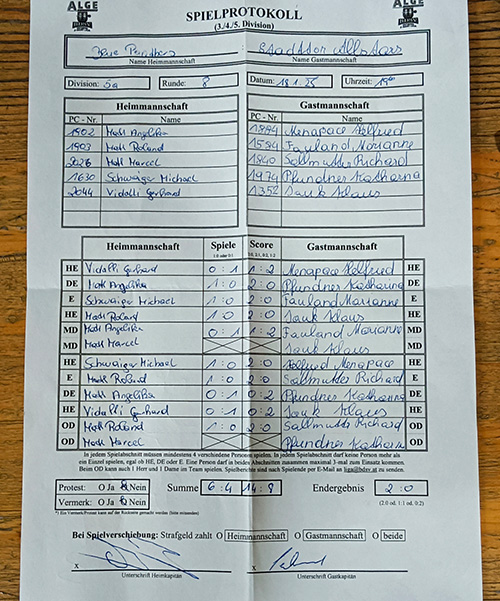 ALGE ALGE
SPIELPROTOKOLL
(3./4./5. Division)
Blue Panthers Stadttor Allstars
Name Heimmannschaft Name Gastmannschaft
Division: 5a Runde: 8 Datum: 18.1.25 Uhrzeit: 19⁰⁰
Heimmannschaft Gastmannschaft
PC - Nr. Name PC - Nr. Name
1902 Matt Angelika 1884 Menapace Helfried
1903 Matt Roland 1594 Fauland Marianne
2026 Matt Marcel 1840 Sallmutter Richard
1630 Schwaiger Michael 1974 Pfundner Katharina
2044 Vidalli Gerhard 1352 Jauk Klaus
Heimmannschaft Spiele Score Gastmannschaft
1:0 oder 0:1 2:0, 2:1, 0:2, 1:2
HE Vidalli Gerhard 0:1 1:2 Menapace Helfried HE
DE Matt Angelika 1:0 2:0 Pfundner Katharina DE
E Schwaiger Michael 1:0 2:0 Fauland Marianne E
HE Matt Roland 1:0 2:0 Jauk Klaus HE
MD Matt Angelika 0:1 1:2 Fauland Marianne MD
MD Matt Marcel Jauk Klaus MD
HE Schwaiger Michael 1:0 2:0 Helfried Menapace HE
E Matt Roland 1:0 2:0 Sallmutter Richard E
DE Matt Angelika 0:1 0:2 Pfundner Katharina DE
HE Vidalli Gerhard 0:1 0:2 Jauk Klaus HE
OD Matt Roland 1:0 2:0 Sallmutter Richard OD
OD Matt Marcel Pfundner Katharina OD
In jedem Spielabschnitt müssen mindestens 4 verschiedene Personen spielen. In jedem Spielabschnitt darf keine Person mehr als
ein Einzel spielen, egal ob HE, DE oder E. Eine Person darf in beiden Abschnitten zusammen maximal 3-mal zum Einsatz kommen.
Beim OD kann auch 1 Herr und 1 Dame im Team spielen. Spielberichte sind nach Spielende per E-Mail an zu senden.
Protest: O Ja O Nein Summe 6:4 14:8 Endergebnis 2:0
Vermerk: *) O Ja O Nein (2:0 od. 1:1 od. 0:2)
*) Ein Vermerk/Protest kann auf der Rückseite gemacht werden (bitte ankreuzen)
Bei Spielverschiebung: Strafgeld zahlt O Heimmannschaft O Gastmannschaft O beide
x x
Unterschrift Heimkapitän Unterschrift Gastkapitän